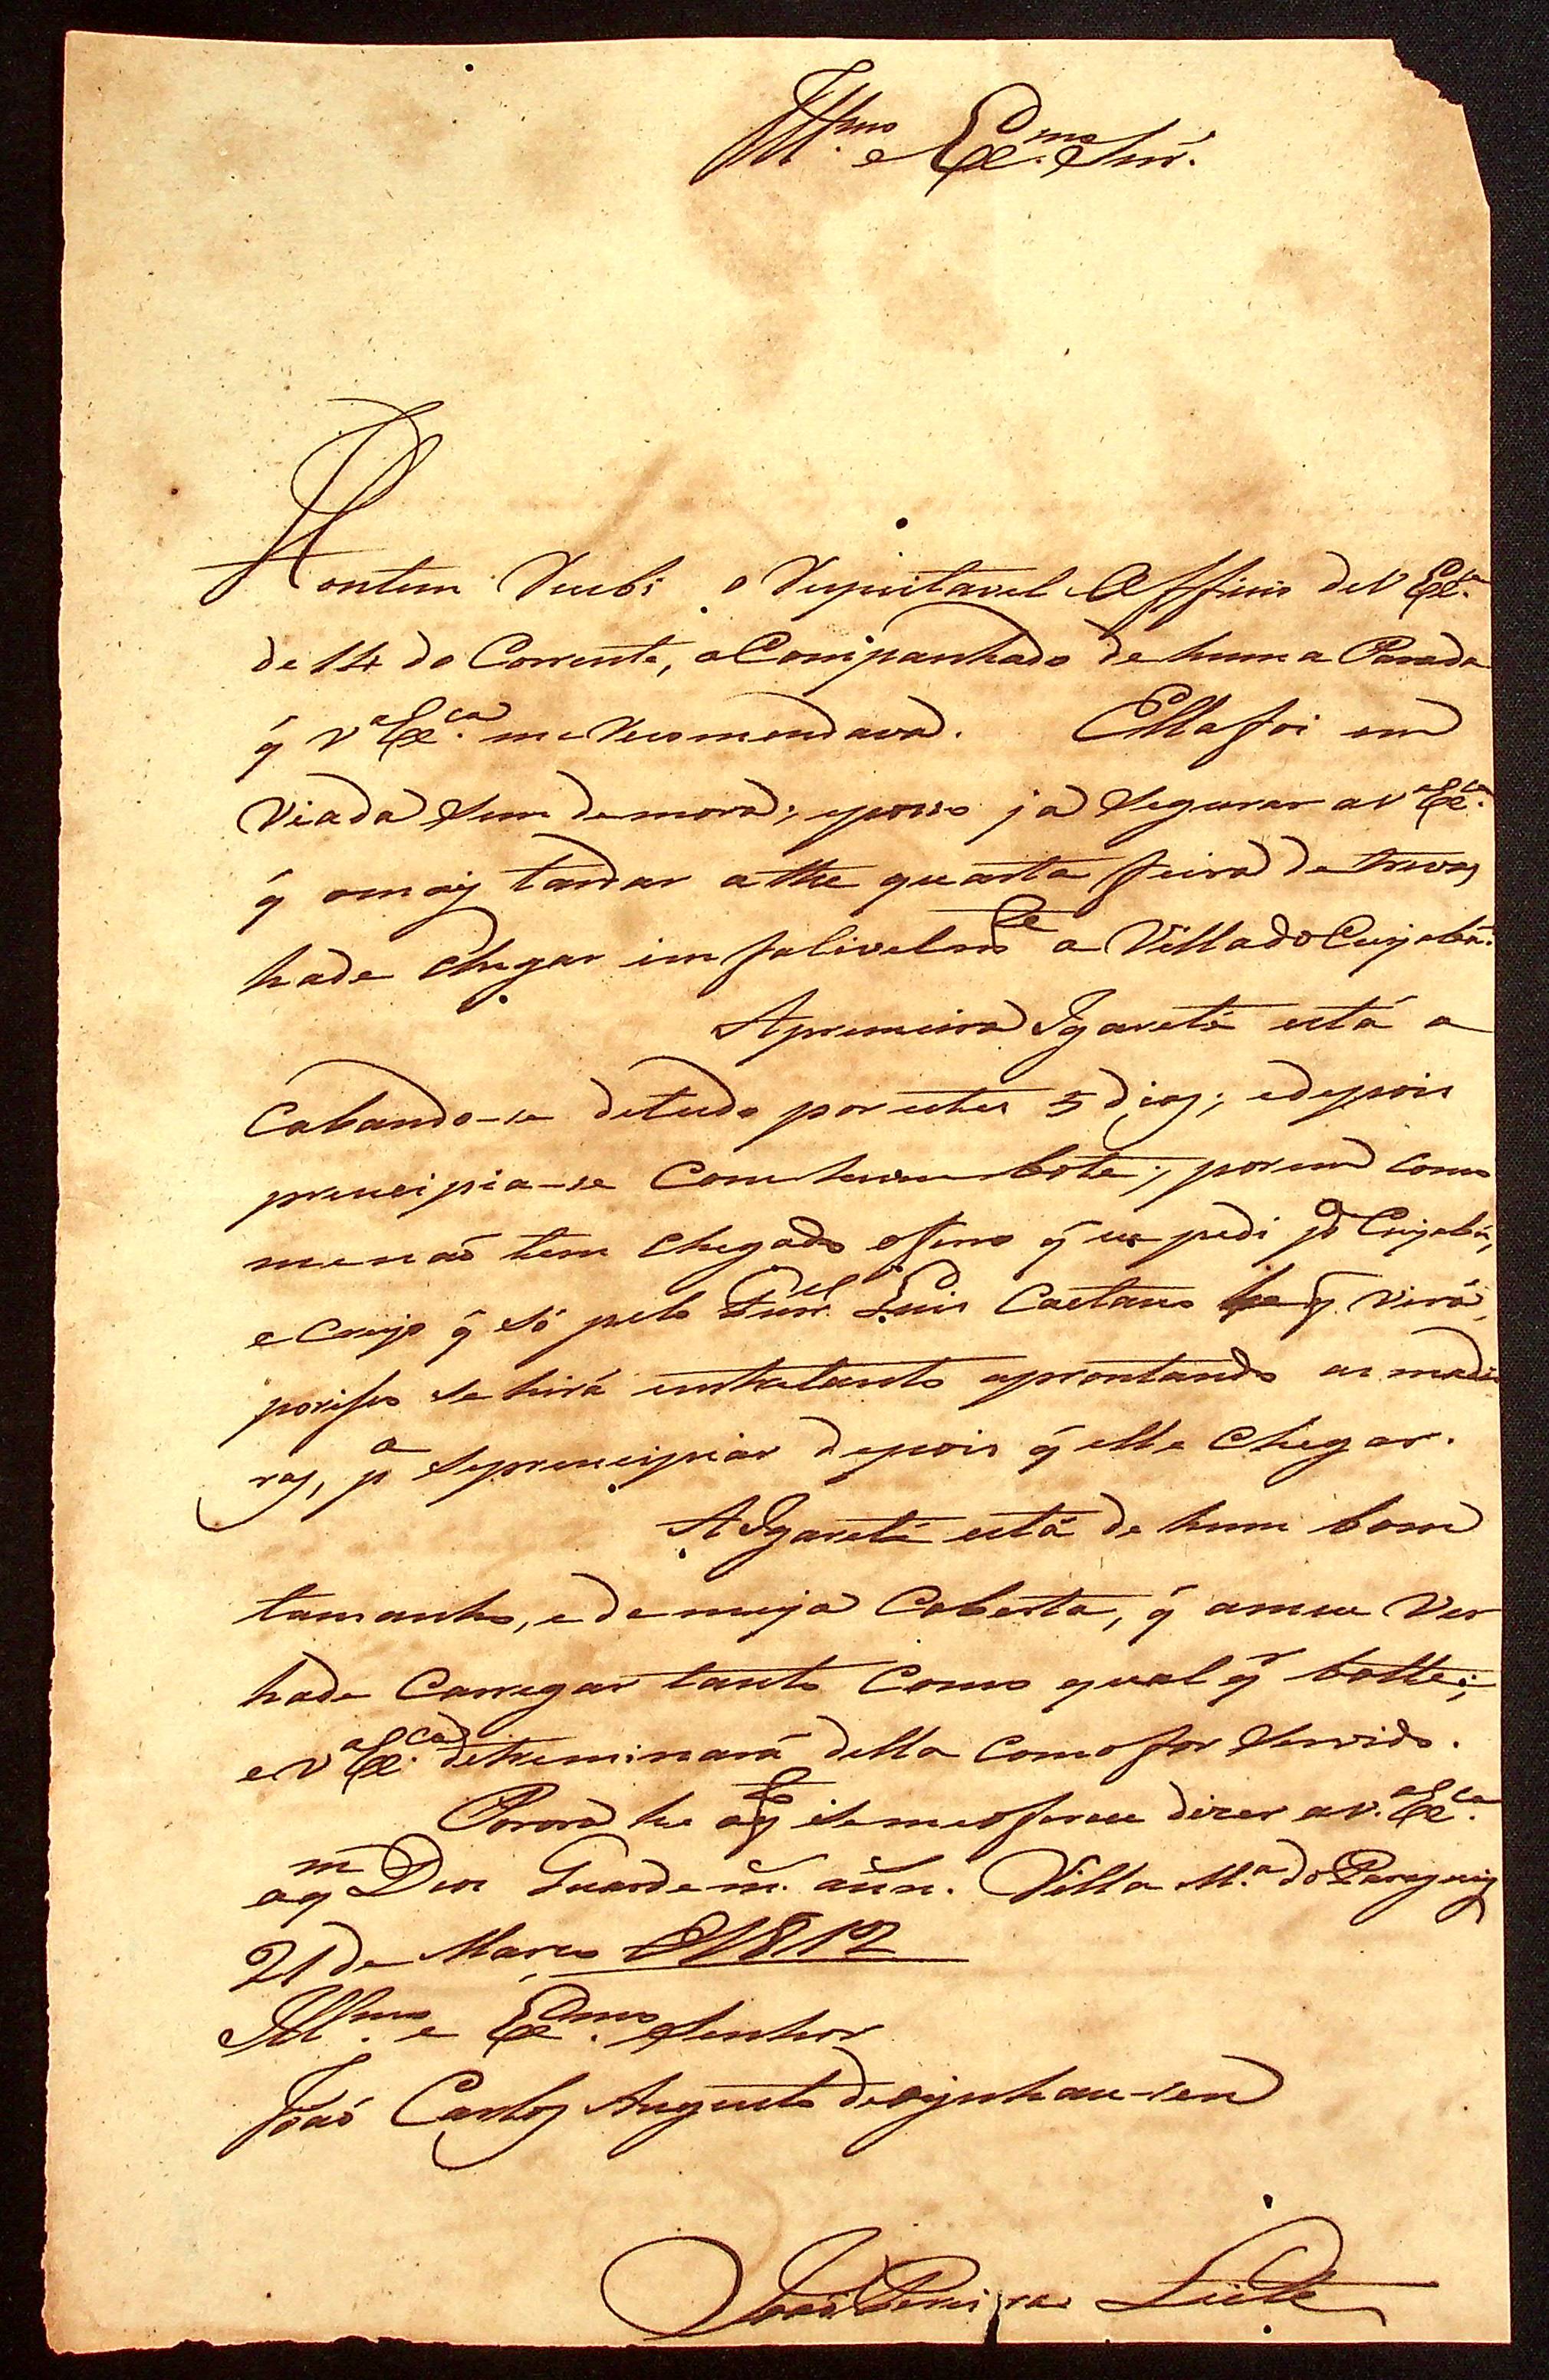 Ill.mo e Ex.mo Snr̃.
Hontem Recebi o Respeitavel Officio de V Ex.ca
de 14 do Corrente, aCompanhado de huma Parada
q̃ V.a Ex.ca me Recomendava. Ella foi en
Viada Sem demora; eposso ja Segurar a V.a Ex.ca
q̃ omais tardar athe quarta feira de trevas
hade Chegar imfalivelm.te a Villa do Cuyabá.
Apremeira Igareté está a
Cabando-se detudo por estes 3 dias; edepois
premcipia-se Com hum bote; porem como
menaõ tem Chegado oferro q̃ eu pedi p.a o Cuyabá,
e Creyo q̃ só pelo Furr.el Luis Caetano he q̃ virá,
porisso se hirá entretanto aprontando as madei
ras, p.a seprencipiar depois q̃ elle Chegar.
A Igareté está de hum bom
tamanho, e de meya Coberta, q̃ ameu Ver
hade Carregar tanto Como qual q.r botte;
e V.a Ex.ca detreminará della comofor Servido.
Porora he oq̃ Seme oferece dizer a V.a Ex.ca
aq.m Deos Guarde m̃. ann̄. Villa M.a do Paraguay
21 de Março D 1812
Ill.mo e Ex.mo Senhor
Joaõ Carlos Augusto deOynhau-sen
Joaõ Pereira Leite